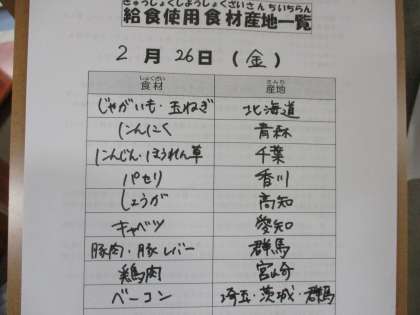 きゅうしょくしようしょくざいさんちいちらん
給食使用食材産地一覧
2月26日(金)
しょくざい さんち
食材 産地
じゃがいも・玉ねぎ 北海道
にんにく 青森
にんじん・ほうれん草 千葉
パセリ 香川
しょうが 高知
キャベツ 愛知
豚肉・豚レバー 群馬
鶏肉 宮崎
ベーコン 埼玉・茨城・群馬